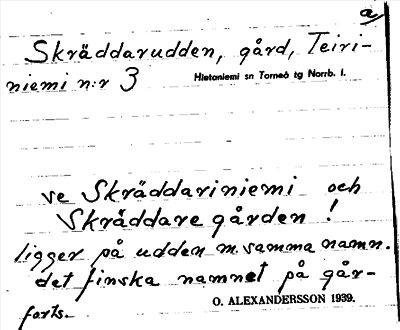 a)
Skräddarudden, gård, Teiri-
niemi n:r 3 Hietaniemi sn Torneå tg Norrb. l.
ve Skräddariniemi och
Skräddaregården!
ligger på udden m. samma namn.
det finska namnet på går-
forts.
O. ALEXANDERSSON 1939.